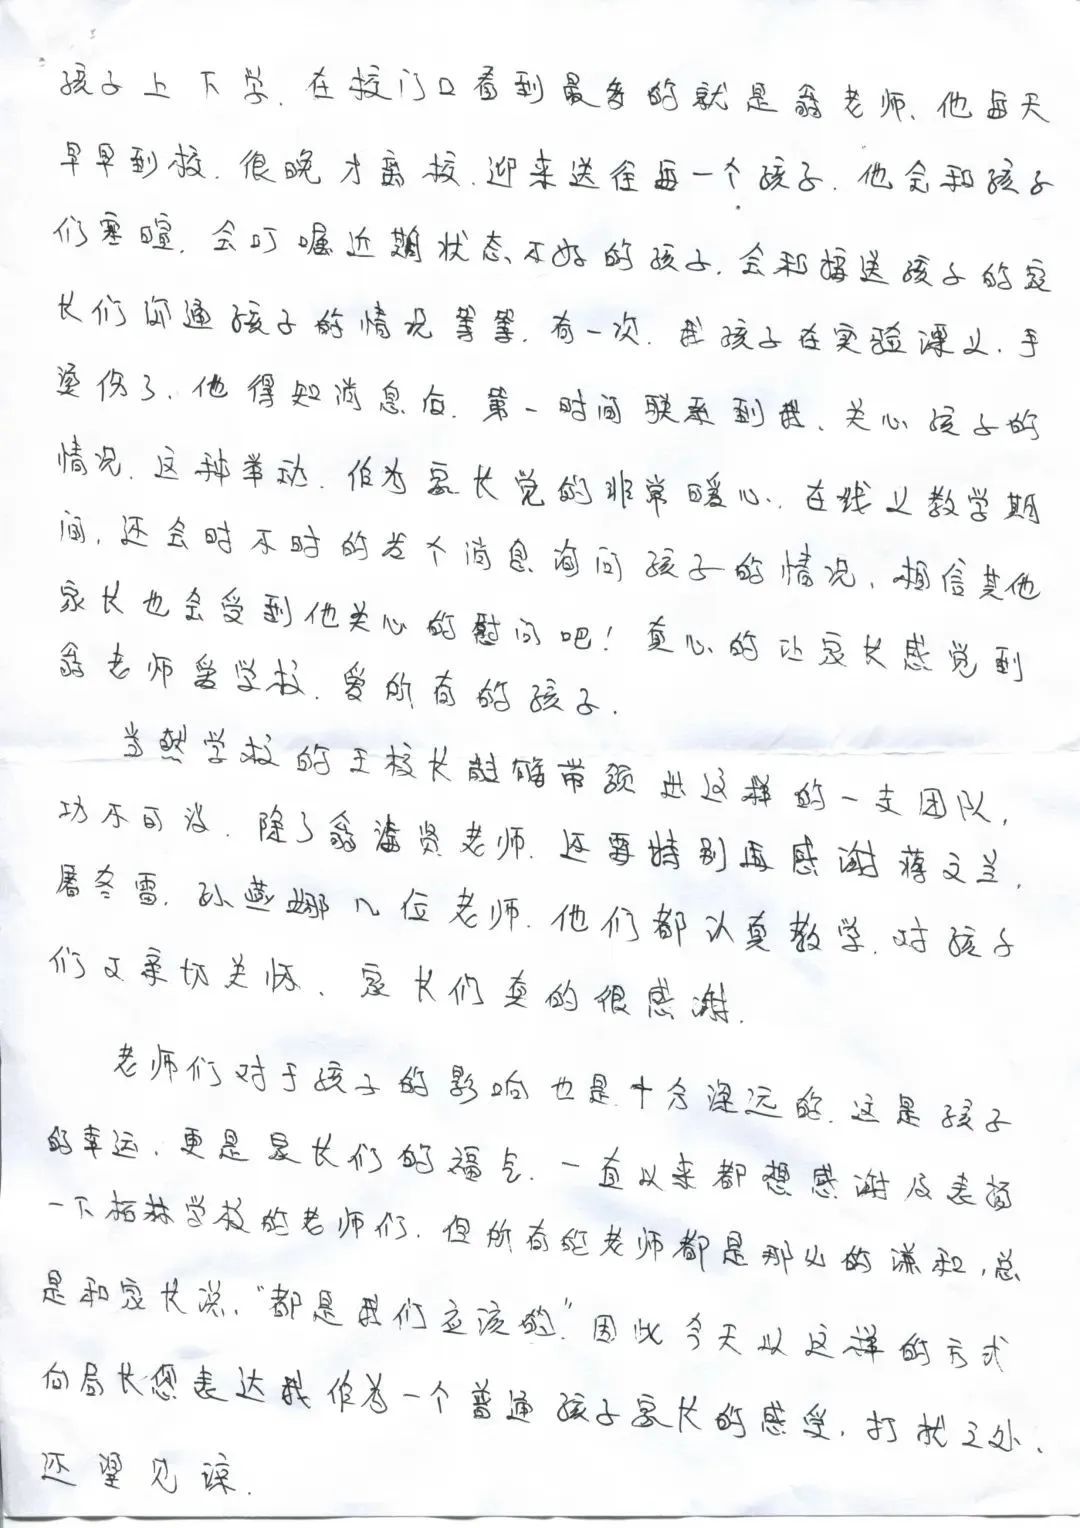 孩子上下学,在校门口看到最多的就是翁老师、他每天
早早到校.很晚才离校.迎来送往每一个孩子.他会和孩子
们寒暄,会叮嘱近期状态不好的孩子,会和接送孩子的家
长们沟通孩子的情况等等.有一次.我孩子在实验课上.手
烫伤了、他得知消息后.第一时间联系到我、关心孩子的
情况.这种举动.作为家长觉的非常暖心.在线上教学期
间,还会时不时的发个消息询问孩子的情况、相信其他
家长也会受到他关心的慰问吧!真心的让家长感觉到
翁老师爱学校.爱所有的孩子.
当然学校的王校长能够带领出这样的一支团队,
功不可没.除了翁贤老师.还要特别再感谢蒋文兰,
屠冬雷.孙燕娜几位老师.他们都认真教学.对孩子
们又亲切关怀、家长们真的很感谢.
老师们对于孩子的影响也是十分深远的.这是孩子
的幸运、更是家长们的福气.一直以来都想感谢及表扬
一下柘林学校的老师们.但所有的老师都是那么的谦和,总
是和家长说、"都是我们应该的."因此今天以这样的方式
向局长您表达我作为一个普通孩子家长的感受,打扰之处、
还望见谅.